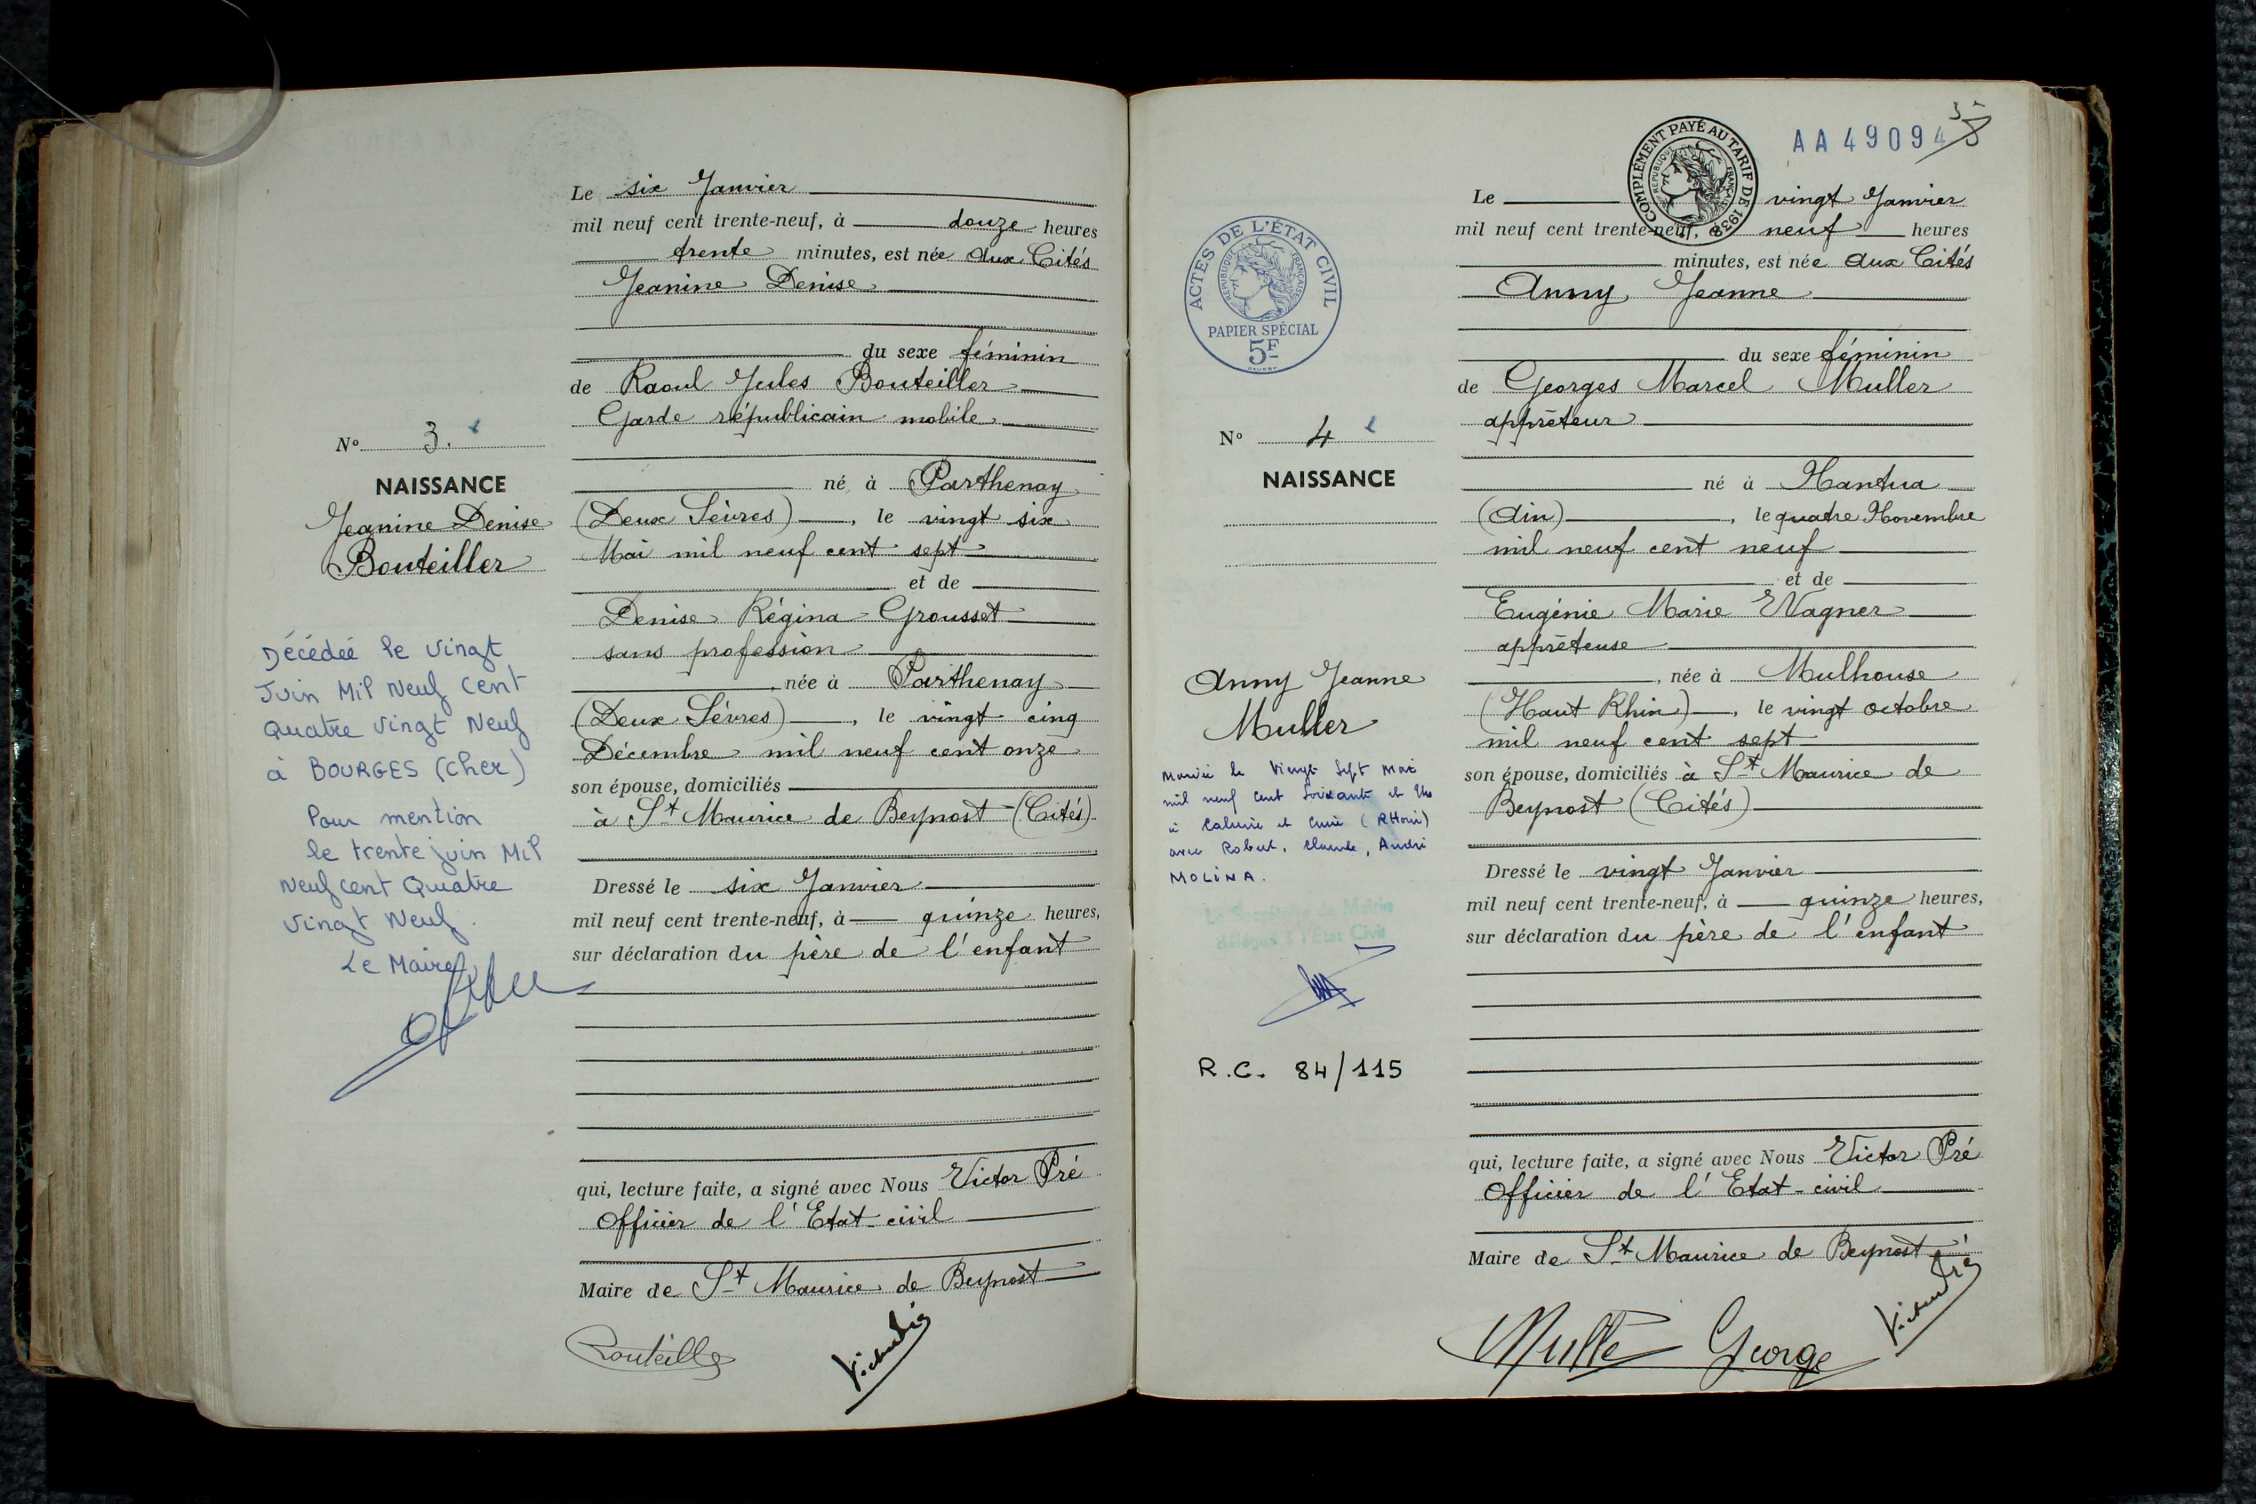 Le six Janvier
mil neuf cent trente-neuf, à douze heures
trente minutes, est née aux Cités
Jeanine Denise
du sexe féminin
de Raoul Jules Bouteiller
Garde républicain mobile
né à Parthenay
(Deux Sèvres), le vingt six
Mai mil neuf cent sept
et de
Denise Régina Grousset
sans profession
, née à Parthenay
(Deux Sèvres), le vingt cinq
Décembre mil neuf cent onze
son épouse, domiciliés
à St Maurice de Beynost (Cités)
Dressé le six Janvier
mil neuf cent trente-neuf, à quinze heures,
sur déclaration du père de l'enfant
qui, lecture faite, a signé avec Nous Victor Pré
Officier de l'Etat-civil
Maire de St Maurice de Beynost
Bouteiller
Victor Pré
No 3.
NAISSANCE
Jeanine Denise
Bouteiller
Décédée le vingt
Juin Mil Neuf Cent
Quatre Vingt Neuf
à BOURGES (Cher)
Pour mention
le trente juin Mil
Neuf cent Quatre
Vingt Neuf.
Le Maire
AA 49094
COMPLÉMENT PAYÉ AU TARIF DE 1938
RÉPUBLIQUE FRANÇAISE
Le vingt Janvier
mil neuf cent trente-neuf, à neuf heures
minutes, est née aux Cités
Anny Jeanne
du sexe féminin
de Georges Marcel Muller
apprêteur
né à Nantua
(Ain), le quatre Novembre
mil neuf cent neuf
et de
Eugénie Marie Wagner
apprêteuse
, née à Mulhouse
(Haut Rhin), le vingt octobre
mil neuf cent sept
son épouse, domiciliés à St Maurice de
Beynost (Cités)
Dressé le vingt Janvier
mil neuf cent trente-neuf, à quinze heures,
sur déclaration du père de l'enfant
qui, lecture faite, a signé avec Nous Victor Pré
Officier de l'Etat-civil
Maire de St Maurice de Beynost
Muller George
Victor Pré
ACTES DE L'ÉTAT CIVIL
RÉPUBLIQUE FRANÇAISE
PAPIER SPÉCIAL
5F
No 4
NAISSANCE
Anny Jeanne
Muller
Mariée le Vingt Sept Mai
mil neuf cent soixante et
à Caluire et Cuire (RHône)
avec Robert, Claude, André
MOLINA.
Le Secrétaire de Mairie
délégué à l'État Civil
R.C. 84/115